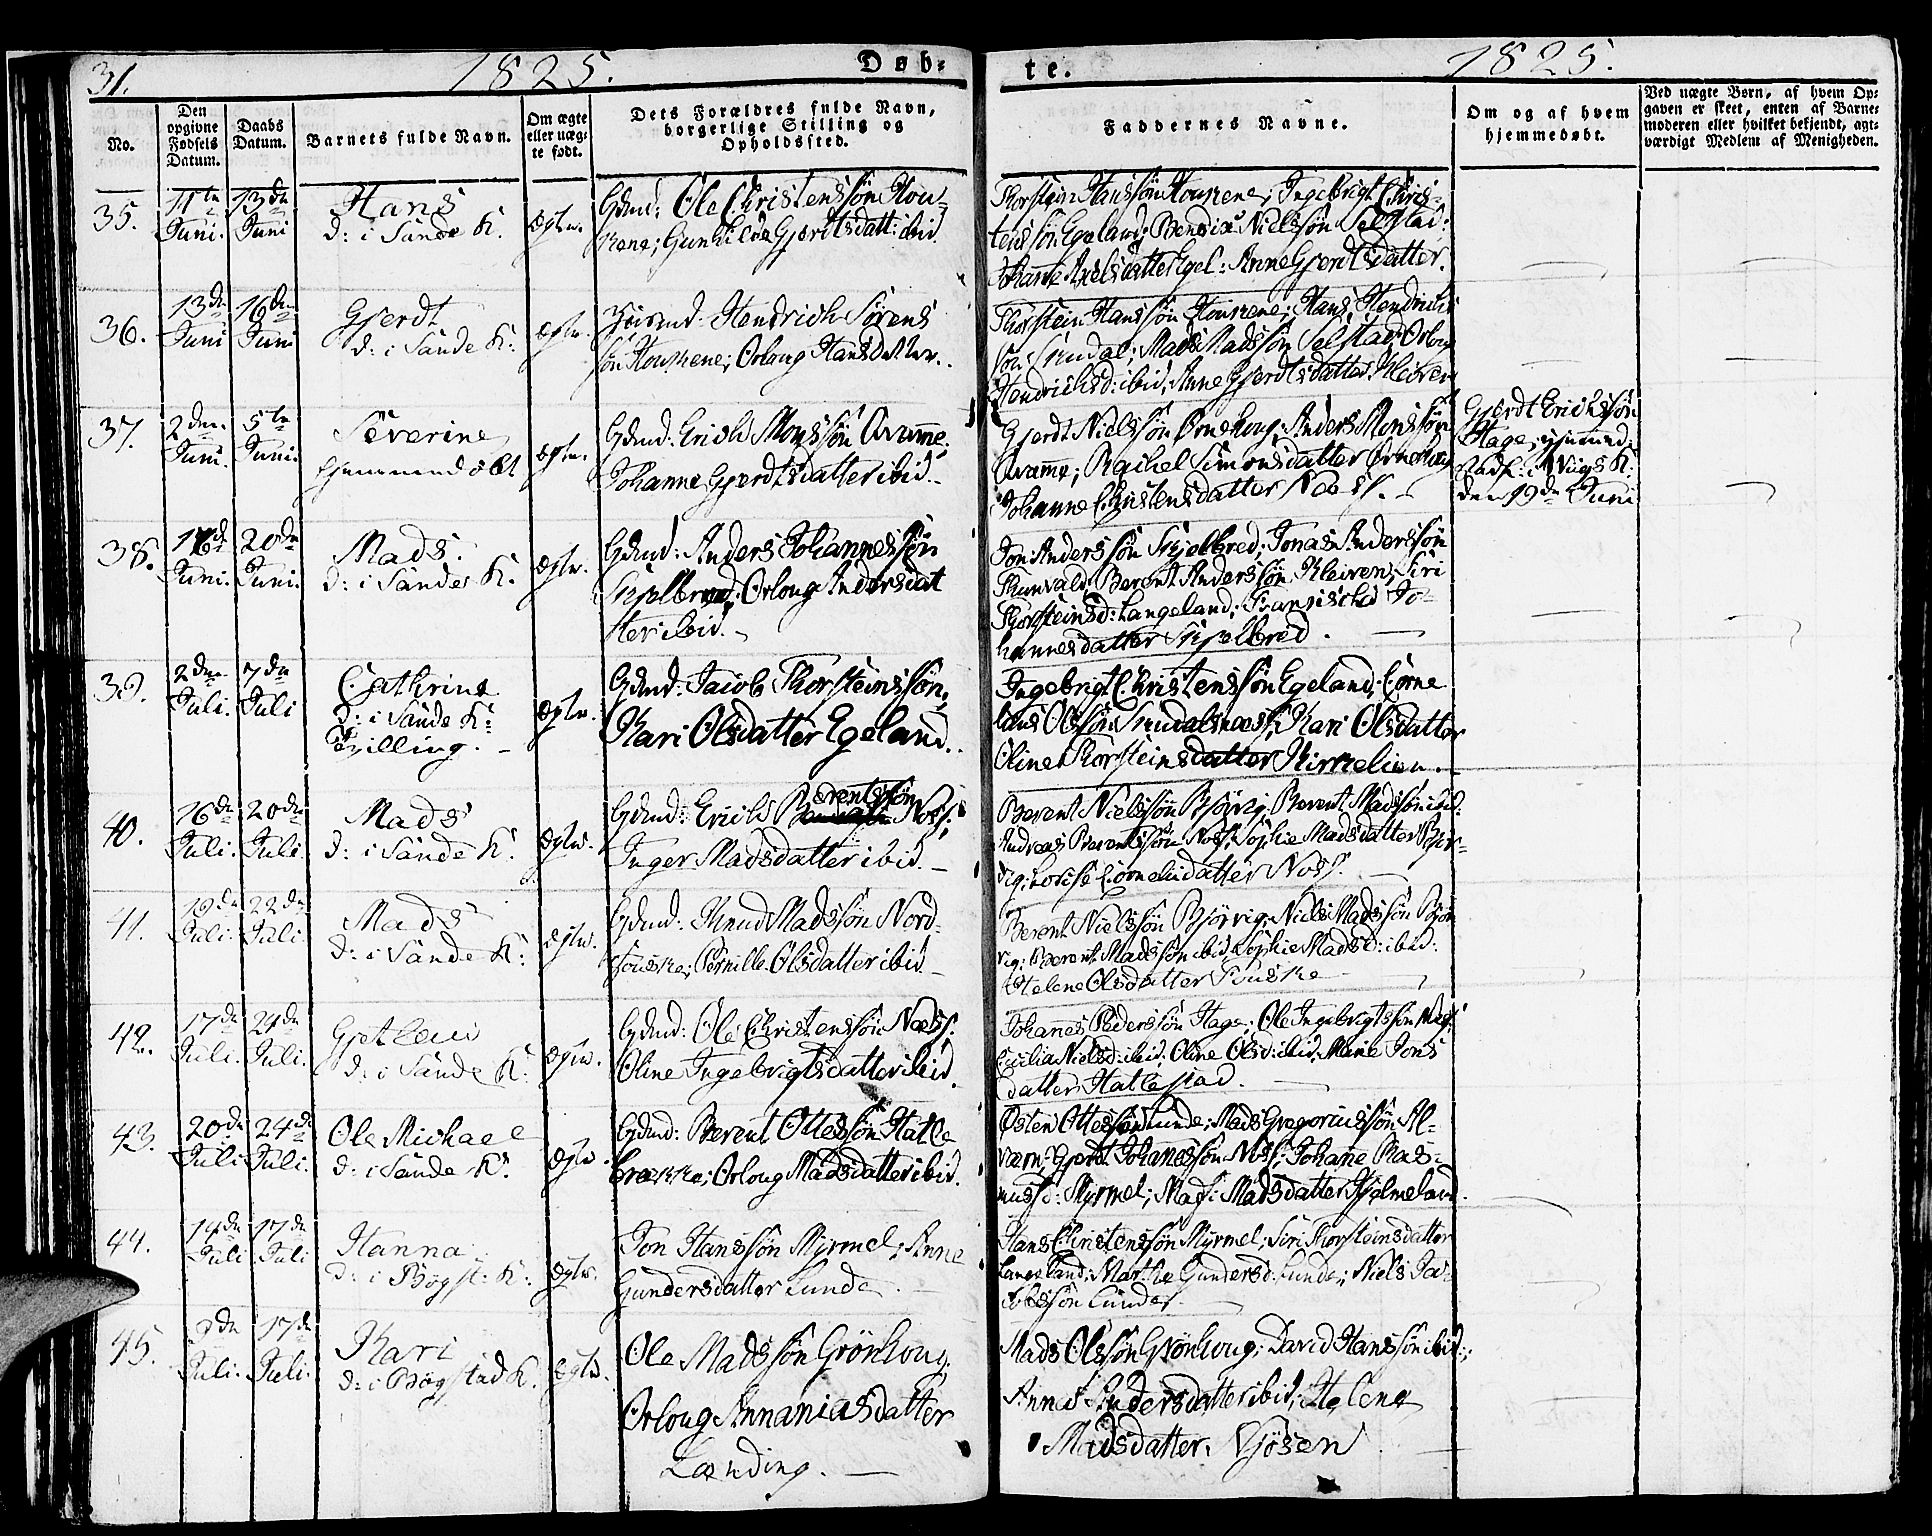 31. 1825. Døb-
te. 1825.
No.
Den opgivne Fødsels Datum.
Daabs Datum.
Barnets fulde Navn.
Om ægte eller uægte født.
Dets Forældres fulde Navn, borgerlige Stilling og Opholdssted.
Faddernes Navne.
Om og af hvem hjemmedøbt.
Ved uægte Børn, af hvem Opgaven er skeet, enten af Barnemoderen eller hvilket bekjendt, agtværdigt Medlem af Menigheden.
35. 11te Juni. 13de Juni
Hans
D: i Sande K.
ægte.
Gdmd: Ole Christenssøn Hou-
kene; Gunhilde Gjerdtsdatt: ibid.
Thorstein Hanssøn Houkene; Ingebrigt Chris-
tenssøn Egeland; Bendix Nielssøn Selstad:
Johanne Axelsdatter Egel: Anne Gjerdtsdatter.
36. 13de Juni 16de Juni
Gjerdt
D: i Sande K:
ægte.
Huusmd: Hendrich Sørens
søn Houkene; Orloug Hansdatter.
Thorstein Hanssøn Houkene; Hans Hendrichs
søn Indal; Mads Madssøn Selstad; Orloug
Hendrichsd: ibid; Anne Gjerdtsdatter Kleiven
37. 2den Juni. 5te Juni.
Severine
hjemmedøbt
ægte.
Gdmd: Erich Monssøn Qvamme.
Johanne Gjerdtsdatter ibid.
Gjerdt Nielssøn Ørnehoug; Anders Monssøn
Qvamme; Rachel Simonsdatter Ørnehoug
Johanne Christensdatter Næss.
Gjerdt Erichssøn
Hage, hjemmed:
stadf: i Viigs K:
den 19de Juni
38. 16de Juni. 20de Juni.
Mads.
D: i Sande K.
ægte.
Gdmd: Anders Johannessøn
Skjelbred: Orloug Andersdat
ter ibid.
Jon Anderssøn Skjelbred; Jonas Anderssøn
Thunvald; Berent Anderssøn Kleiven; Siri
Thorsteinsd: Langeland; Fransische Jo-
hannesdatter Skjelbred.
39. 2den Juli. 7de Juli
Cathrine
D: i Sande K:
Tvilling.
ægte.
Gdmd: Jacob Thorsteinssøn,
Kari Olsdatter Egeland.
Ingebrigt Christenssøn Egeland; Corne
lius Olssøn Indalsnæss; Kari Olsdatter
Oline Thorsteinsdatter Kirkelien.
40. 16de Juli. 20de Juli.
Mads
D: i Sande K.
ægte.
Gdmd: Erich Berentssøn Noss;
Inger Madsdatter ibid.
Berent Nielssøn Bjørvig; Berent Madssøn ibid.
Andreas Berentssøn Noss; Sophie Madsdatter Bjør-
vig; Lovise Corneliidatter Noss.
41. 19de Juli. 22de Juli.
Mads
D: i Sande K:
ægte.
Gdmd: Knud Madssøn Nord-
; Pernille Olsdatter ibid.
Berent Nielssøn Bjørvig; Niels Madssøn Bjør
vig; Berent Madssøn ibid; Sophie Madsd: ibid:
Helene Olsdatter
42. 17de Juli. 24de Juli.
D: i Sande K:
ægte.
Gdmd: Ole Christenssøn Næss.
Oline Ingebrigtsdatter ibid.
Johannes Pederssøn Hage; Ole Ingebrigtssøn
Cicilia Nielsd: ibid; Oline Olsd: ibid, Marie Jons
datter Hatlestad.
43. 20de Juli 24de Juli.
Ole Michael
D: i Sande K:
ægte.
Gdmd: Berent Ottessøn Hatle
brekke; Orloug Madsdatter ibid.
Østen Ottessøn Lunde; Mads Gregoriussøn Al-
værn; Gjerdt Johannessøn Noss; Johanne Ras-
musd: Myrmel; Madsdatter Hjelmeland.
44. 14de Juli 17de Juli
Hanna
D: i Bøgst: K:
ægte.
Jon Hanssøn Myrmel; Anne
Gundersdatter Lunde.
Hans Christenssøn Myrmel; Siri Thorsteinsdatter
Langeland; Marthe Gundersd: Lunde; Niels Ja-
cobssøn Lunde.
45. Juli. 17de Juli.
Kari
D: i Bøgstad K.
ægte.
Ole Madssøn Grønhoug;
Orloug Annaniasdatter
Lænding.
Mads Olssøn Grønhoug; David Hanssøn ibid;
Anna Andersdatter ibid; Helena
Madsdatter